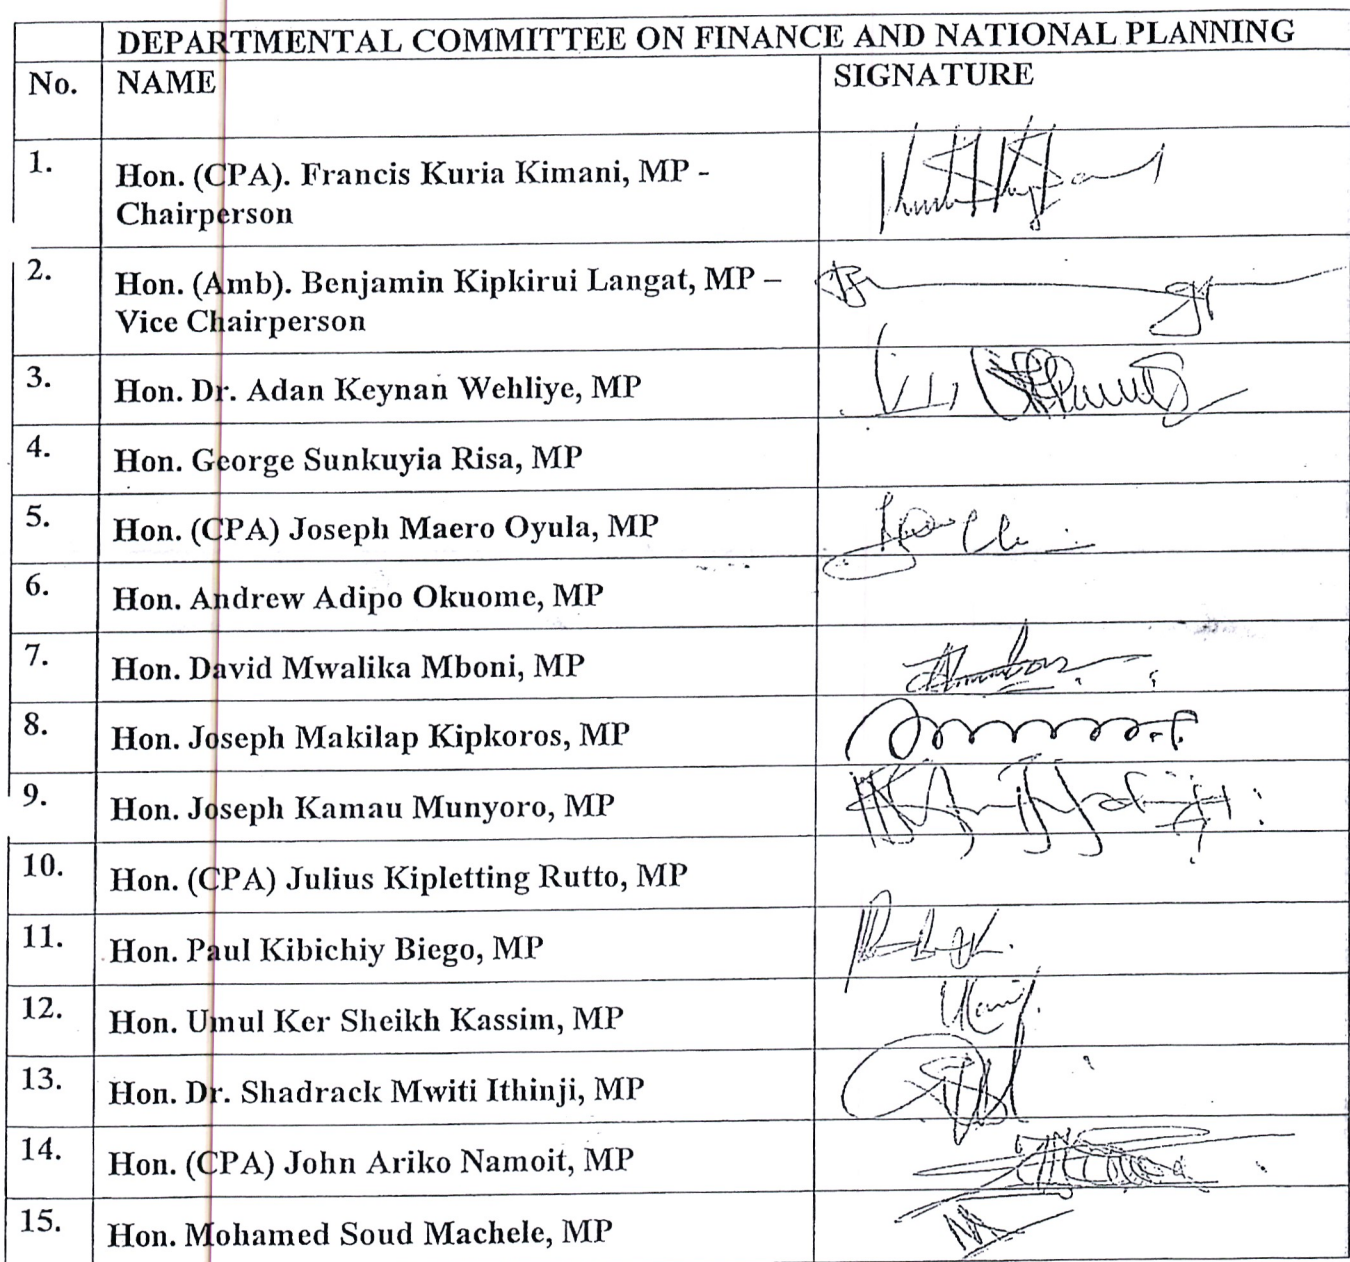 DEPARTMENTAL COMMITTEE ON FINANCE AND NATIONAL PLANNING
No. NAME SIGNATURE
1. Hon. (CPA). Francis Kuria Kimani, MP -
Chairperson
2. Hon. (Amb). Benjamin Kipkirui Langat, MP –
Vice Chairperson
3. Hon. Dr. Adan Keynan Wehliye, MP
4. Hon. George Sunkuyia Risa, MP
5. Hon. (CPA) Joseph Maero Oyula, MP
6. Hon. Andrew Adipo Okuome, MP
7. Hon. David Mwalika Mboni, MP
8. Hon. Joseph Makilap Kipkoros, MP
9. Hon. Joseph Kamau Munyoro, MP
10. Hon. (CPA) Julius Kipletting Rutto, MP
11. Hon. Paul Kibichiy Biego, MP
12. Hon. Umul Ker Sheikh Kassim, MP
13. Hon. Dr. Shadrack Mwiti Ithinji, MP
14. Hon. (CPA) John Ariko Namoit, MP
15. Hon. Mohamed Soud Machele, MP